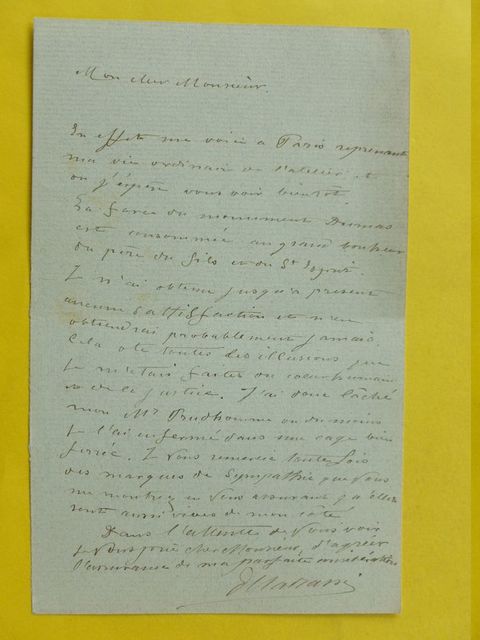 Mon cher Monsieur.
En effet me voici a Paris reprenant
ma vie ordinaire de l'atelier et
ou j'espère vous voir bientot.
La farce du monument Dumas
est consommée au grand bonheur
du père du fils et du St Esprit.
Je n'ai obtenu jusqu'a present
aucune satisfaction et n'en
obtiendrai probablement jamais.
Cela ote toutes des illusions que
je m'etais faites du cœur humain
et de la justice. J'ai donc lâché
mon Mr Prudhomme ou du moins
je l'ai enfermé dans une cage bien
ferrée. Je vous remercie toutefois
des marques de sympathie que vous
me montrez en vous assurant qu'elles
sont aussi vives de mon coté
Dans l'attente de vous voir
je vous prie cher Monsieur, d'agréer
l'assurance de ma parfaite considération